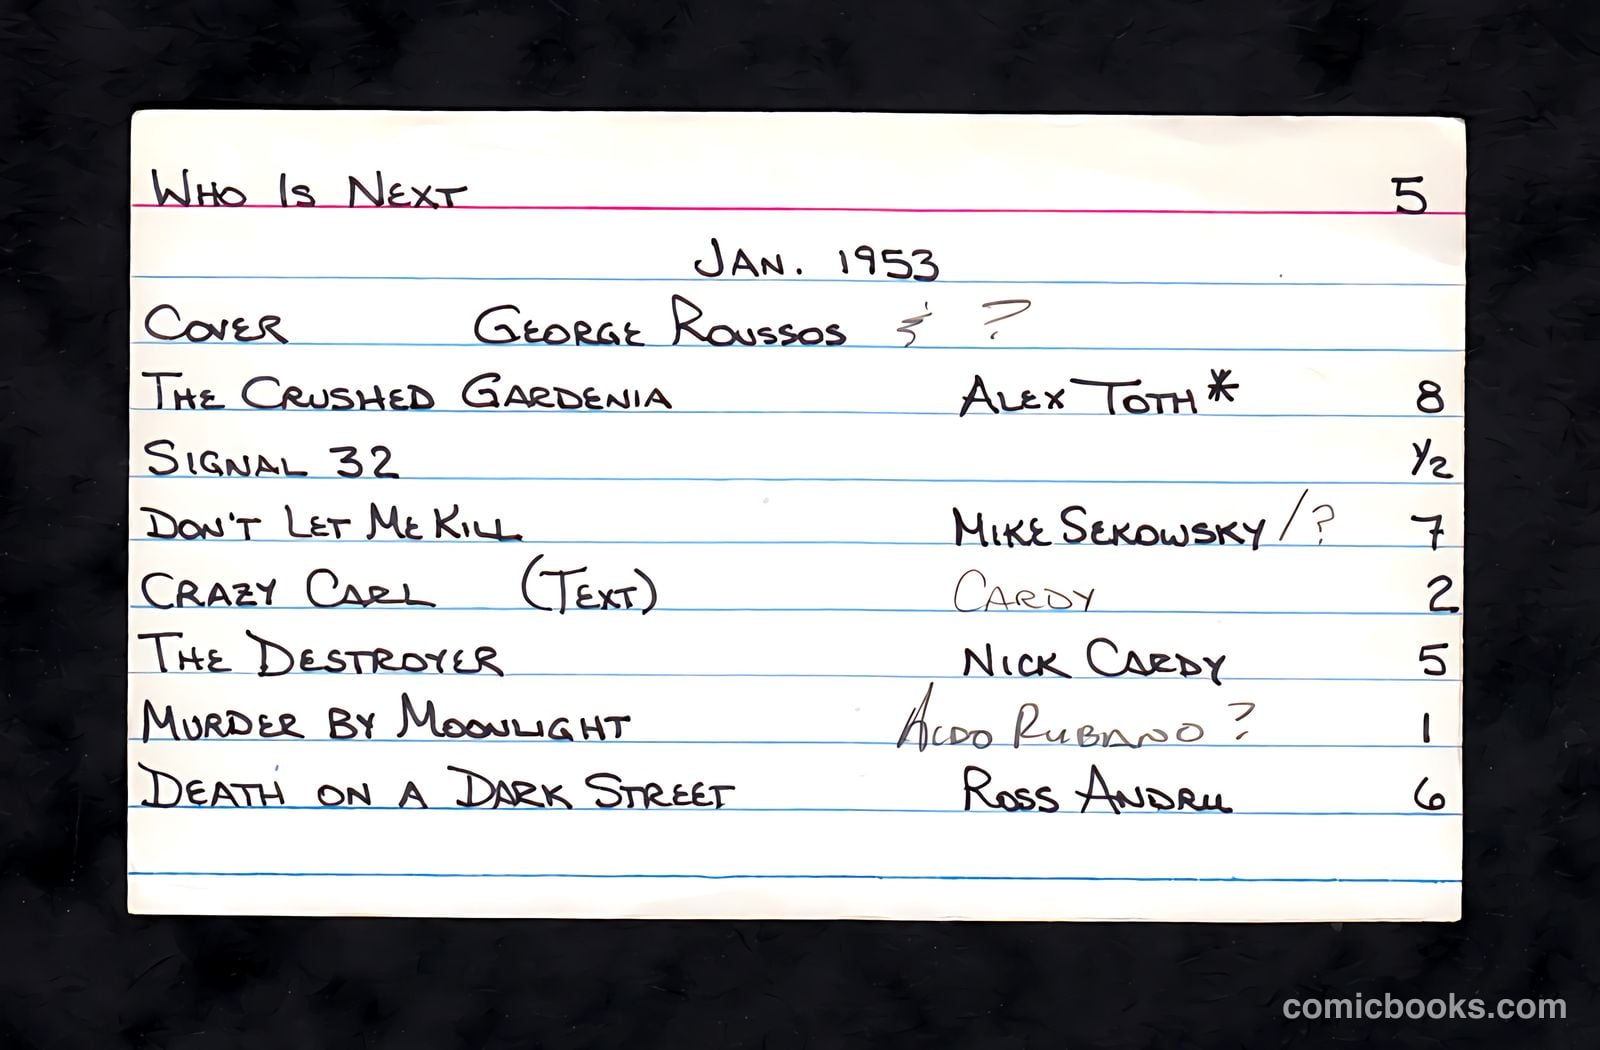 Who Is Next 5
Jan. 1953
Cover George Roussos & ?
The Crushed Gardenia Alex Toth* 8
Signal 32 1/2
Don't Let Me Kill Mike Sekowsky /? 7
Crazy Carl (Text) Cardy 2
The Destroyer Nick Cardy 5
Murder by Moonlight Aldo Rubano ? 1
Death on a Dark Street Ross Andru 6
comicbooks.com